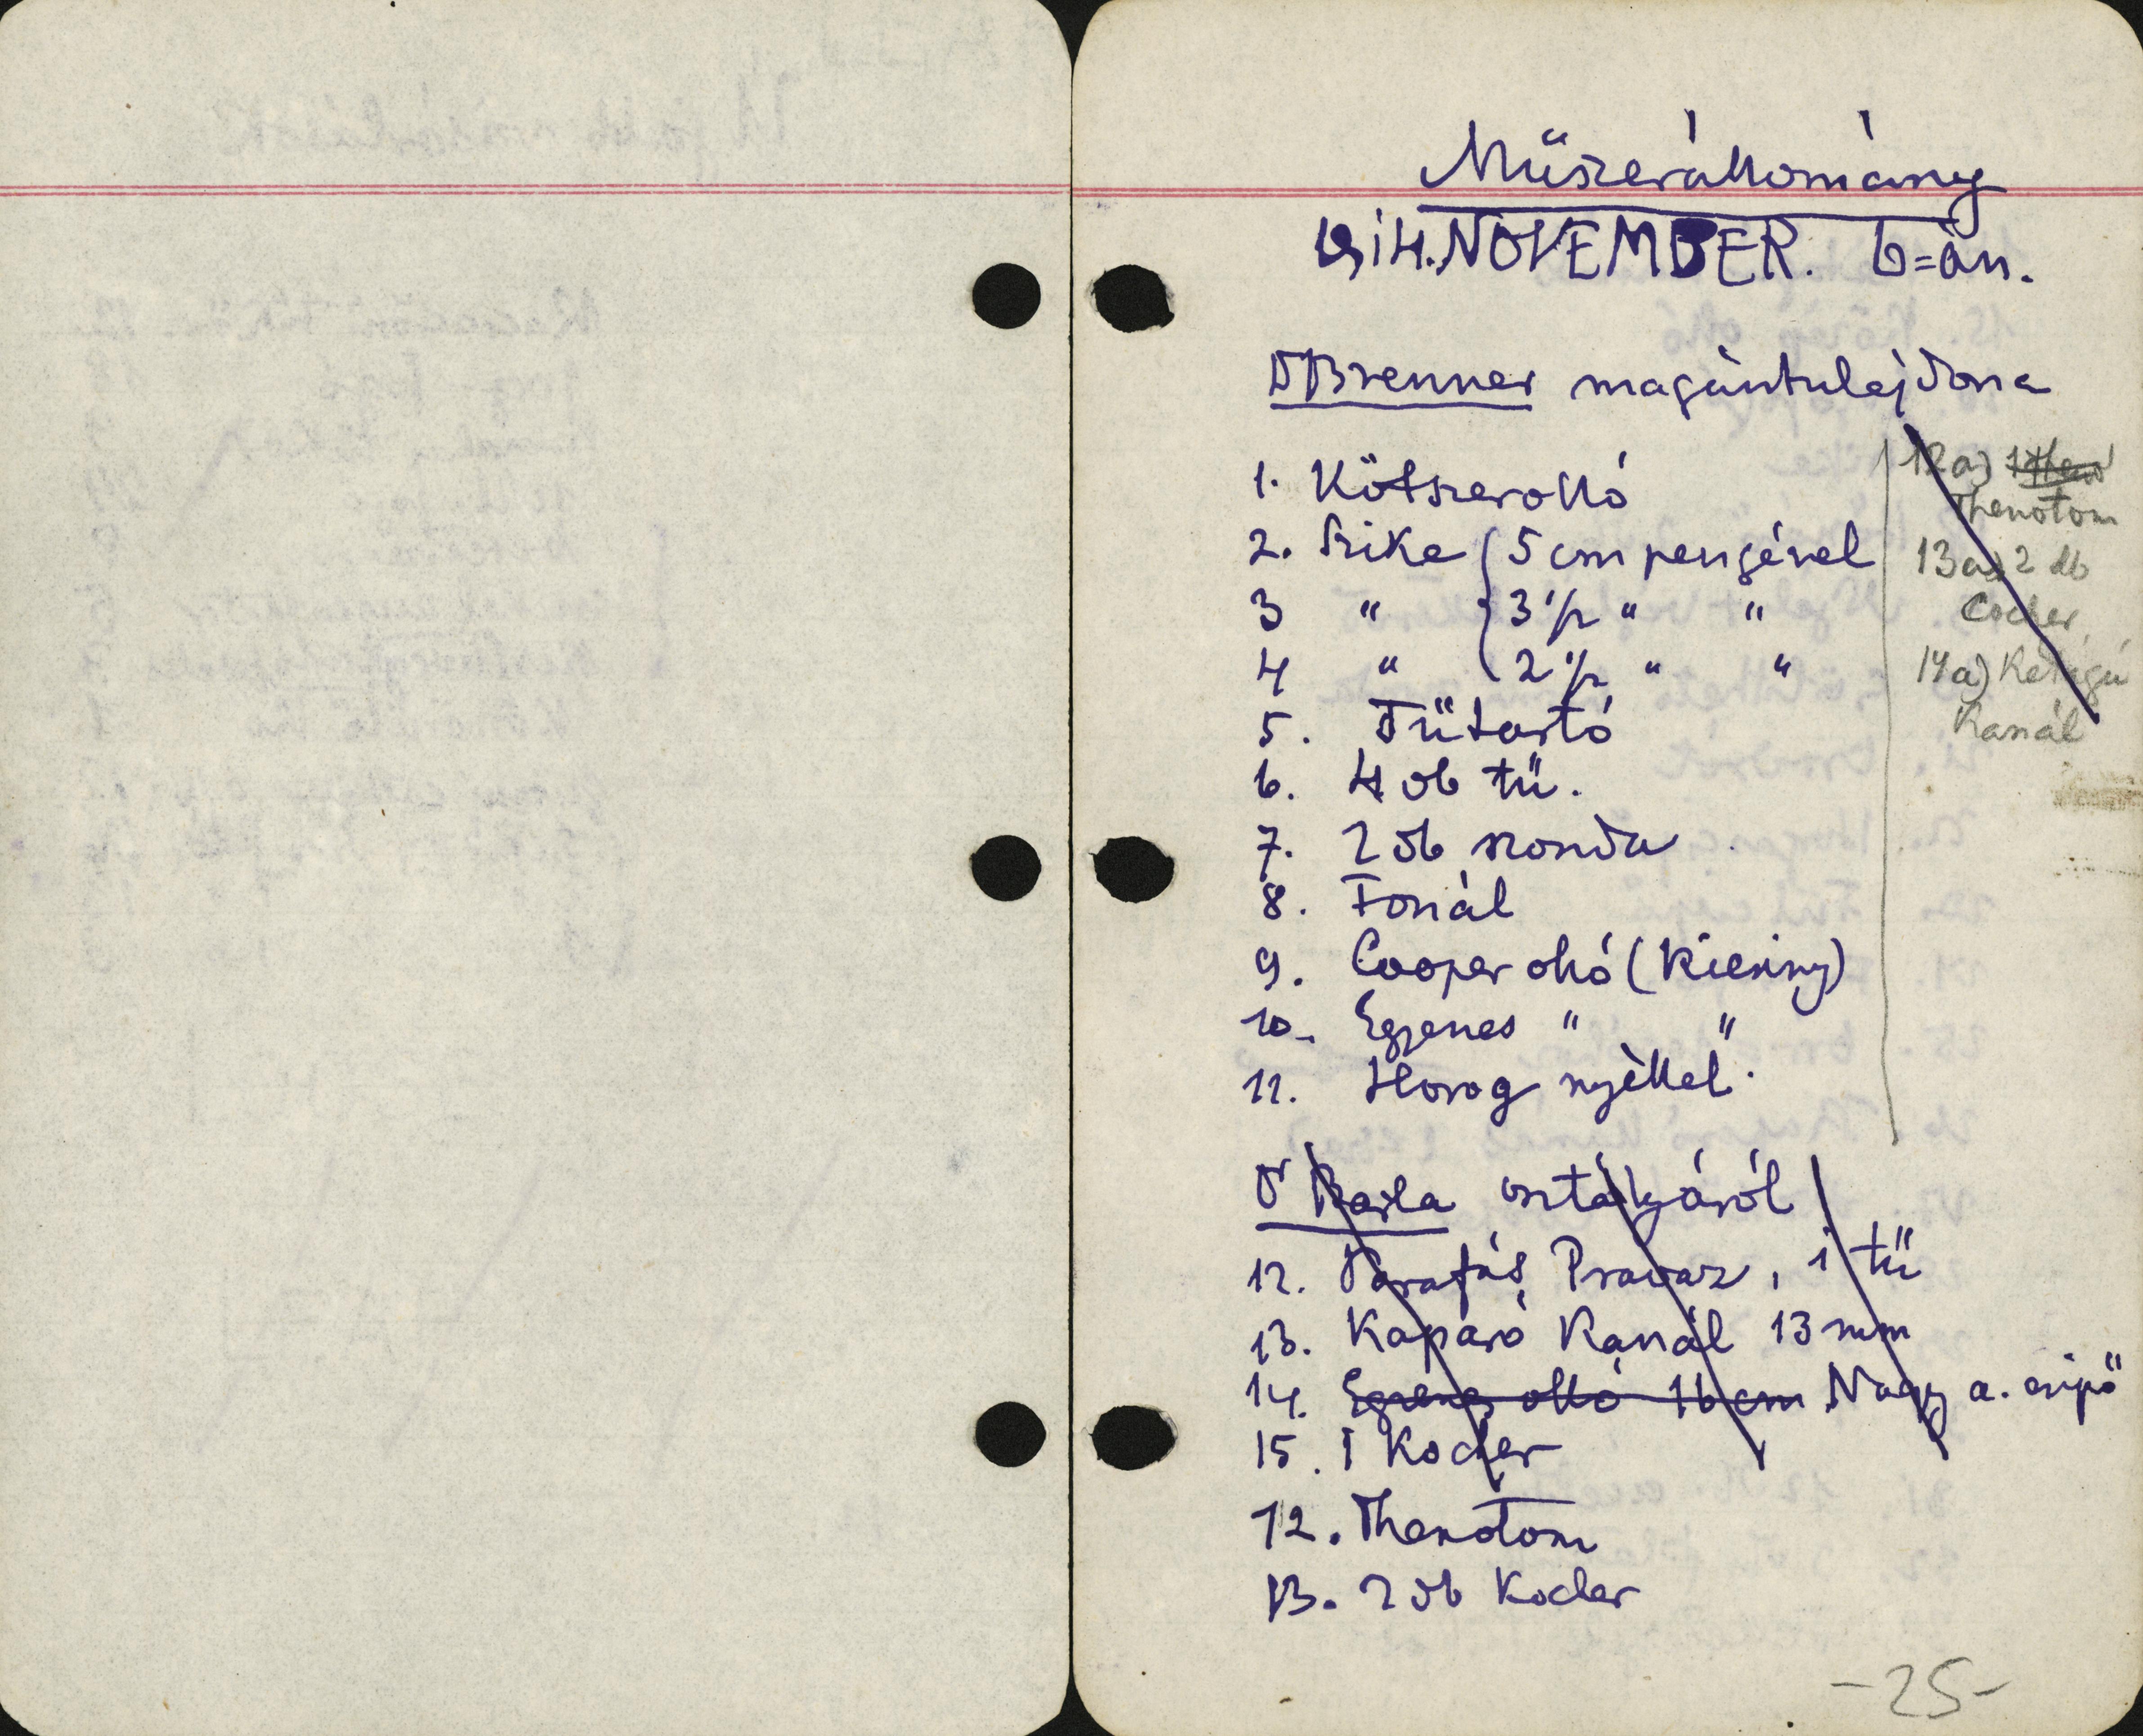 Műszerállomány
1914. NOVEMBER. 6=án.
Dr Brenner magántulajdona
1. Kötszerolló
2. Szike 5 cm pengével
3 " 3 1/2 " "
4 " 2 1/2 " "
5. Tűtartó
6. 4 db tű.
7. 2 db szonda
8. Fonál
9. Cooper olló (Kicsiny)
10. Egyenes " "
11. Horog nyéllel.
12a)
Thenotom
13a) 2 db
Cocher
14a) Ketágú
Kanál
Dr Barla osztályáról
12. Pravaz, 1 tű
13. Kaparó Kanál 13 mm
14. Egyenes olló 16 cm Nagy a. csipő
15. 1 Kocher
12. Thenotom
13. 2 db Kocher
-25-